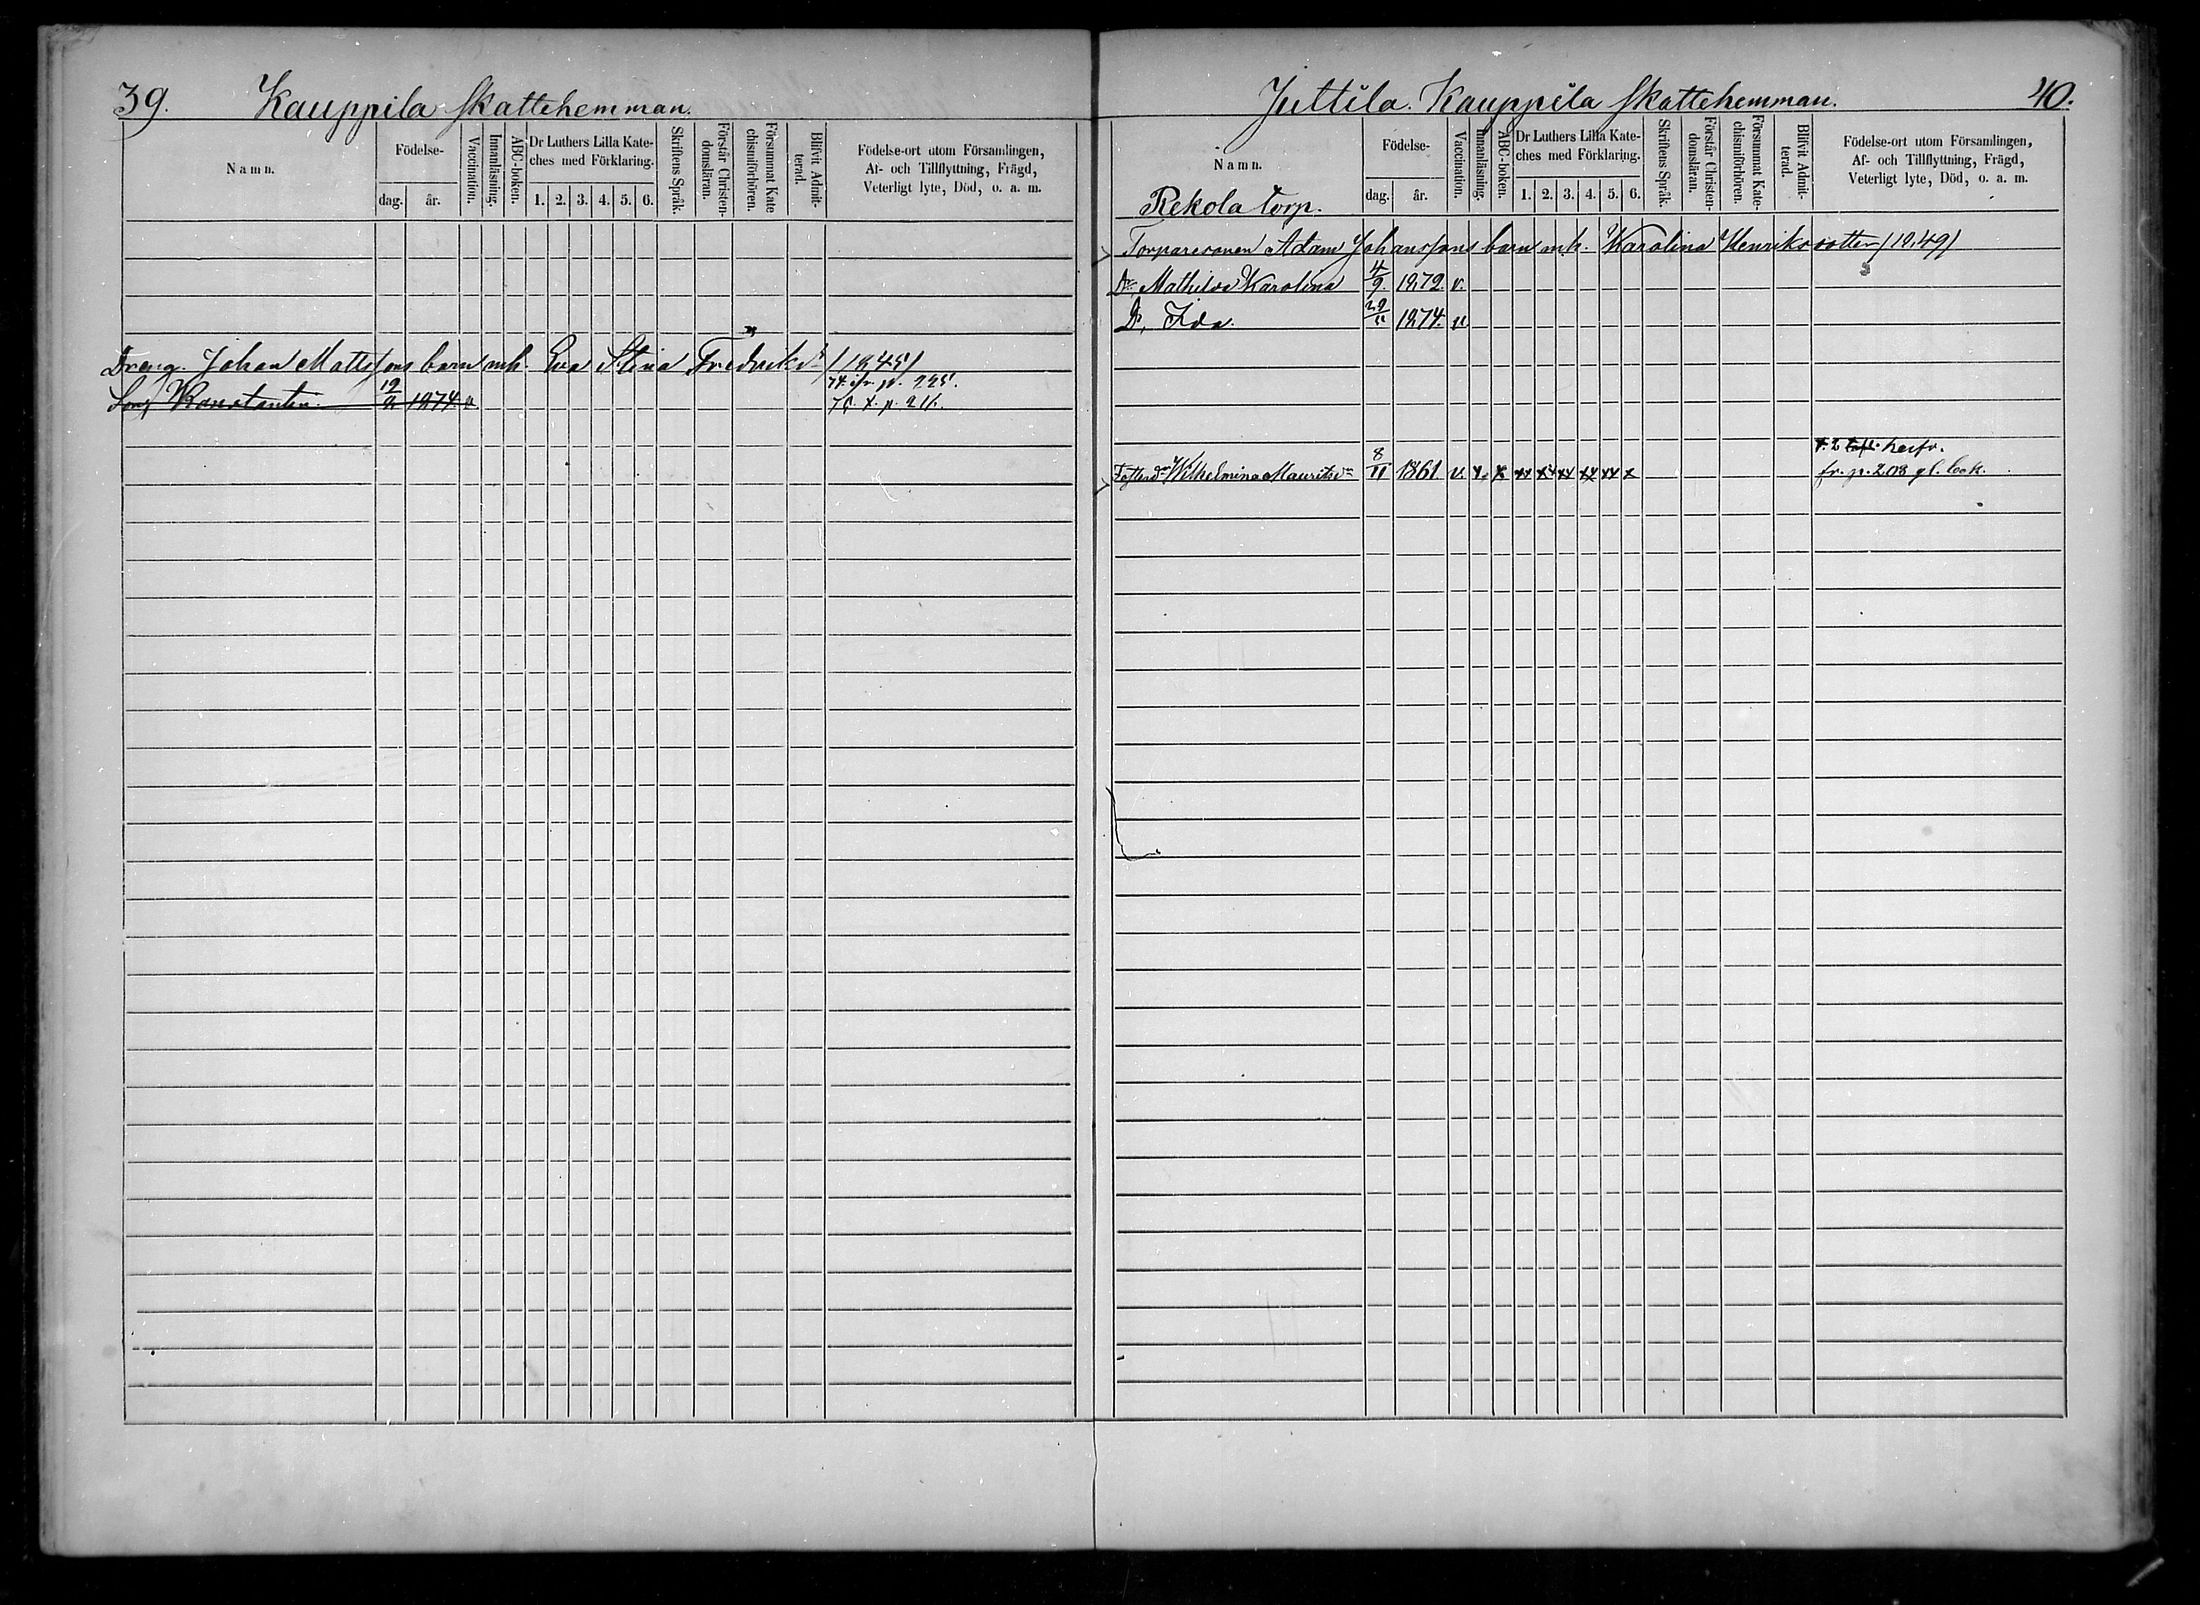 39. Kauppila skattehemman.
Namn.
Födelse-
dag.
år.
Vaccination.
Innanläsning.
ABC-boken.
Dr Luthers Lilla Kate-
ches med Förklaring.
1. 2. 3. 4. 5. 6.
Skriftens Språk.
Förstår Christen-
domsläran.
Försummat Kate
chismiförhören.
Blifvit Admit-
terad.
Födelse-ort utom Församlingen,
Af- och Tillflyttning, Frägd,
Veterligt lyte, Död, o. a. m.
Dreng. Johan Matssons barn mh. Eva Stina Fredriksdr /1845/
74. ifr. p. 225.
Son, Konstantin. 12/11 1874. v. 76. t. p. 211.
Juttila. Kauppila skattehemman. 40.
Namn.
Rekola torp.
Födelse-
dag.
år.
Vaccination.
Innanläsning.
ABC-boken.
Dr Luthers Lilla Kate-
ches med Förklaring.
1. 2. 3. 4. 5. 6.
Skriftens Språk.
Förstår Christen-
domsläran.
Försummat Kate-
chismiförhören.
Blifvit Admit-
terad.
Födelse-ort utom Församlingen,
Af- och Tillflyttning, Frägd,
Veterligt lyte, Död, o. a. m.
Torparesonen Adam Johanssons barn mh. Karolina Henriksdotter /1849/
Dr, Mathilda Karolina 4/9 1872. v.
Dr, Ida. 29/11 1874. v.
Fosterdr Wilhelmina Mauritsdr 8/11 1861. v. x. x xx xx xx xx xx x
fr. p. 208 gl. bok.